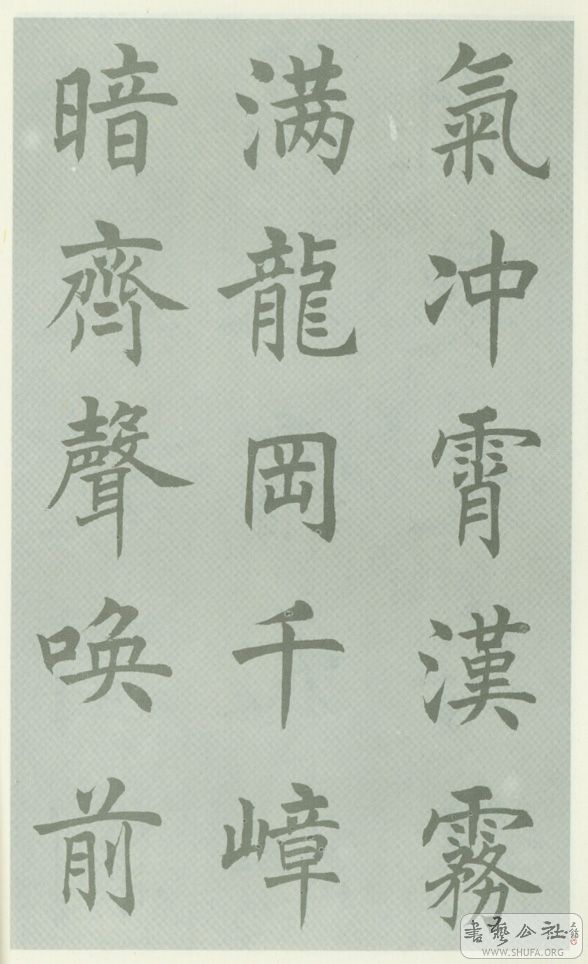 氣冲霄漢霧
满龍岡千嶂
暗齊聲唤前
書藝公社
WWW.SHUFA.ORG